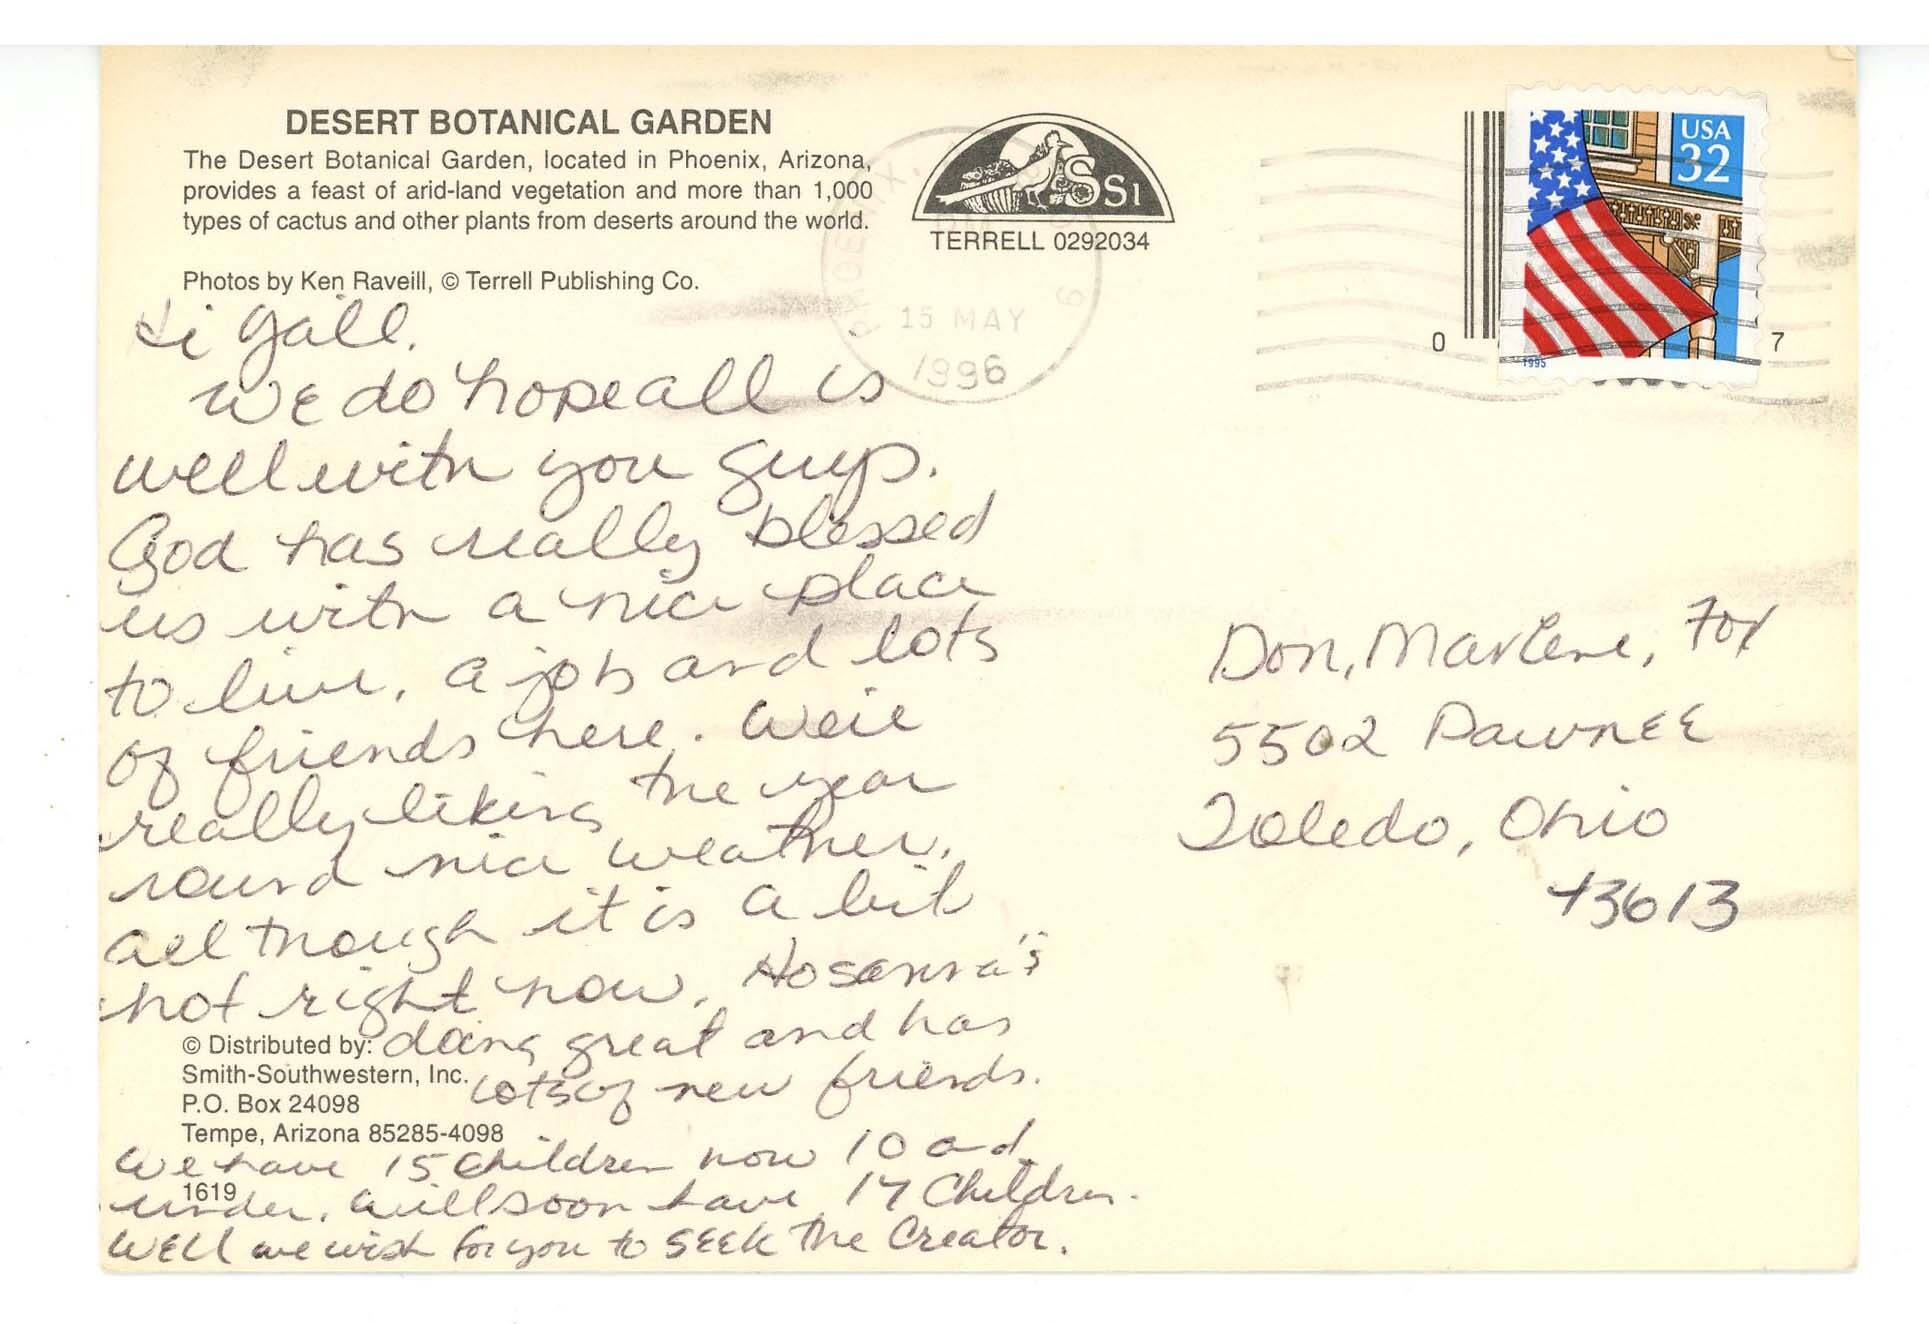 DESERT BOTANICAL GARDEN
The Desert Botanical Garden, located in Phoenix, Arizona,
provides a feast of arid-land vegetation and more than 1,000
types of cactus and other plants from deserts around the world.
Photos by Ken Raveill, © Terrell Publishing Co.
SSI
TERRELL 0292034
PHOENIX,
PM
15 MAY
1996
USA
32
1995
0 7
Hi Yall.
We do hope all is
well with you guys.
God has really blessed
us with a nice place
to live, a job and lots
of friends here. We're
really liking the year
round nice weather,
all though it is a bit
hot right now. Hosanna's
doing great and has
lots of new friends.
We have 15 children now 10 and
under. Will soon have 17 Children.
Well we wish for you to SEEK the Creator.
© Distributed by:
Smith-Southwestern, Inc.
P.O. Box 24098
Tempe, Arizona 85285-4098
1619
Don, Marlene, Fox
5502 Pawnee
Toledo, Ohio
43613